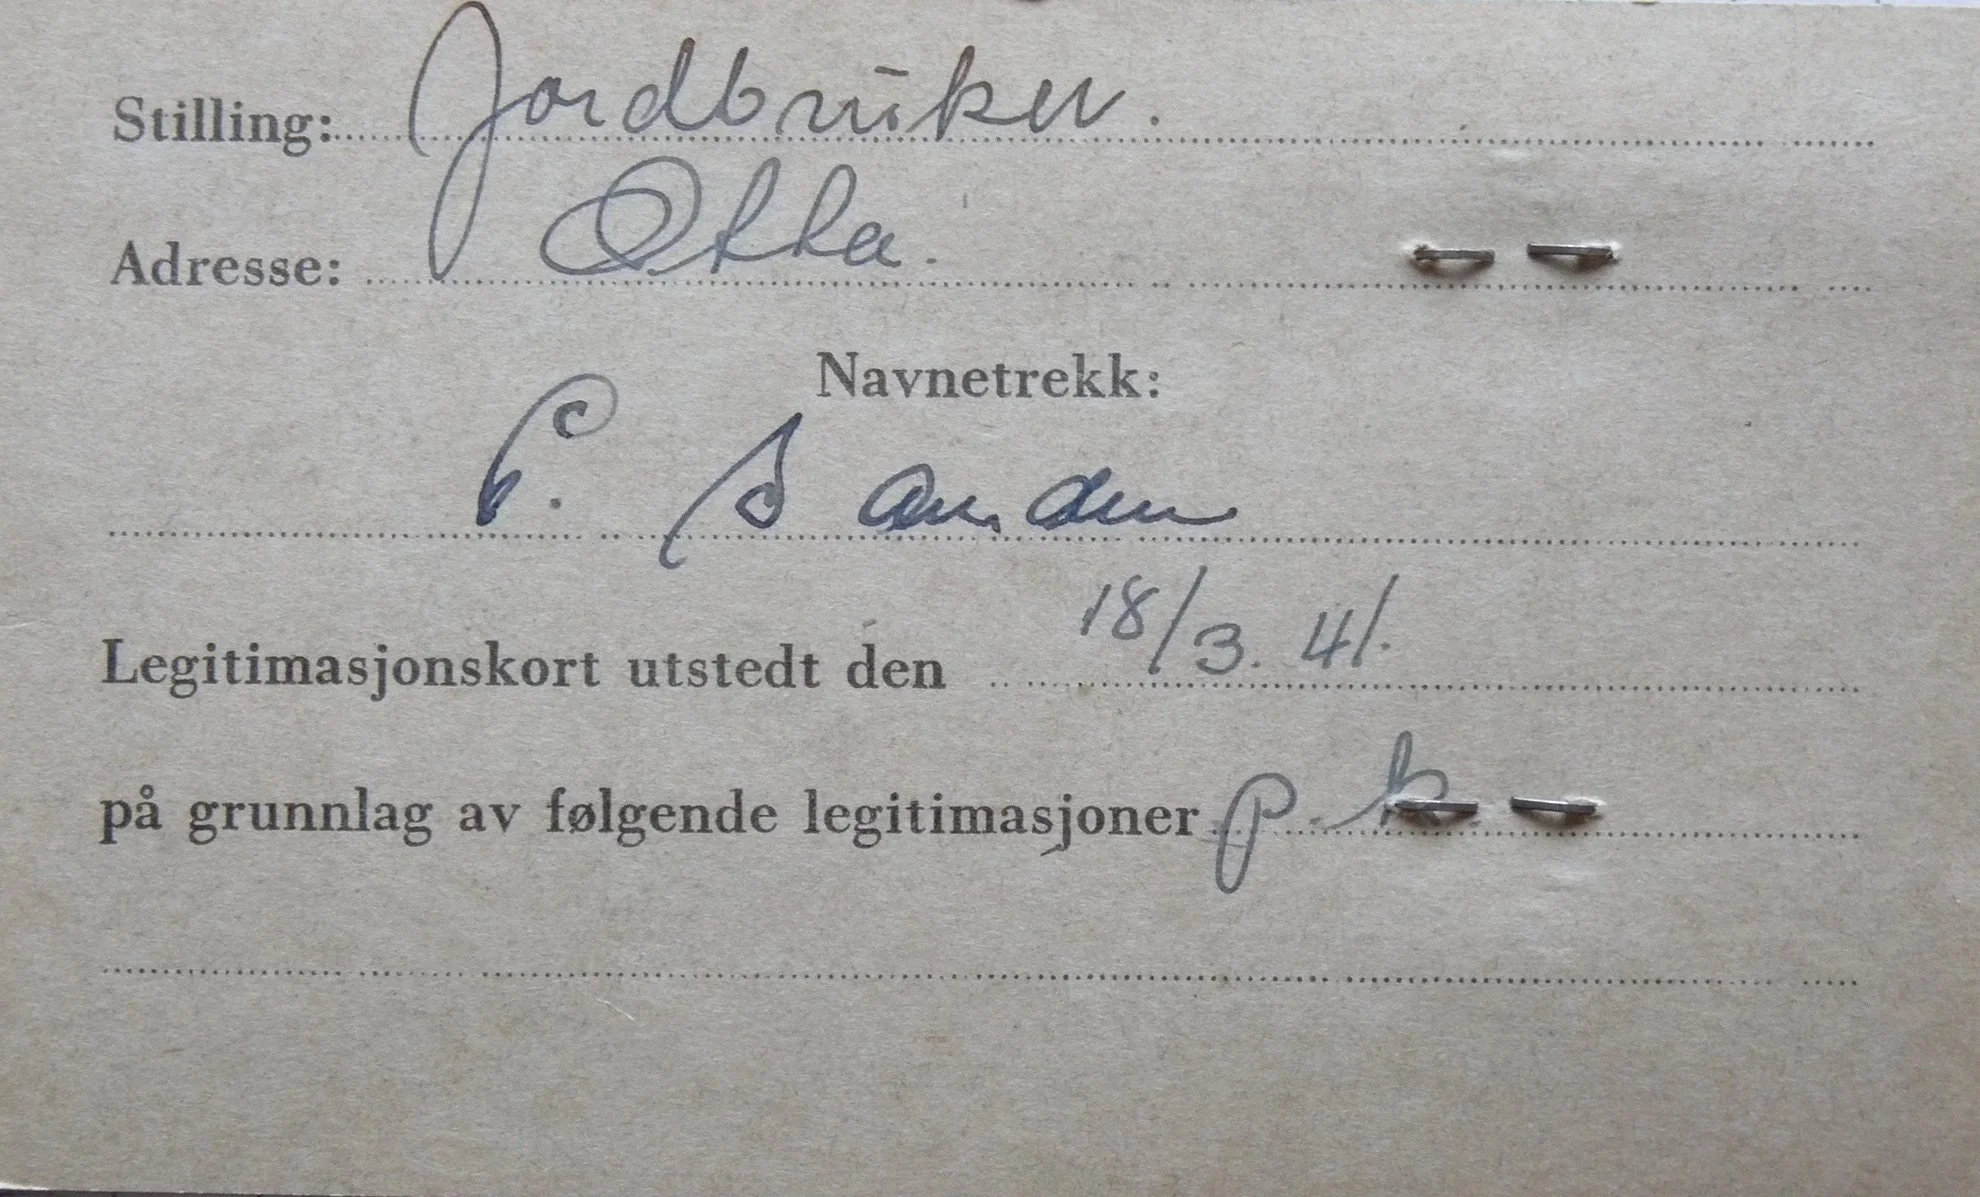 Stilling: Jordbruker.
Adresse: Otta.
Navnetrekk:
P. Sanden
Legitimasjonskort utstedt den 18/3. 41.
på grunnlag av følgende legitimasjoner p. k.